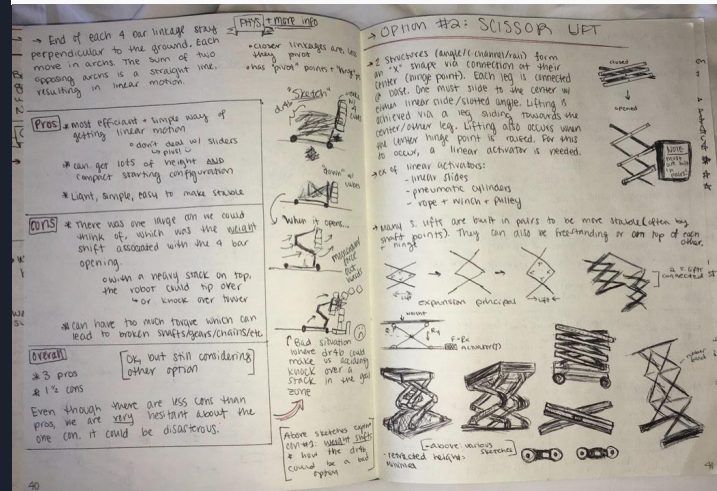 → End of each 4 bar linkage stay
perpendicular to the ground. Each
move in arcns. The sum of two
opposing arcns is a straight line,
resulting in linear motion.
Pros
* most efficient + simple way of
getting linear motion
◦ don't deal w/ sliders
* can get lots of height AND
compact starting configuration
* Light, simple, easy to make stable
Cons
* There was one large con we could
think of, which was the weight
shift associated with the 4 bar
opening.
◦ with a heavy stack on top,
the robot could tip over
↳ or knock over tower
* can have too much torque which can
lead to broken shafts/gears/chains/etc
Overall
* 3 pros
* 1½ cons
[Ok, but still considering
other option]
Even though there are less cons than
pros, we are very hesitant about the
one con. it could be disasterous.
40
PHYS + more info
• closer linkages are,
they pivot
• has "pivot" points +
"Sketch"
dr4b
"down" w/
cubes
When it opens...
↑ Bad situation
where dr4b could
make us accidently
knock over a
stack in the goal
zone
Above sketches
con #1. weight shifts
* how the dr4b
could be a bad
option
→ OPTION #2: SCISSOR LIFT
→ 2 structures (angle/c channel/rail) form
an "X" shape via connection at their
center (hinge point). Each leg is connected
@ base. One must slide to the center w/
either linear slide/slotted angle. Lifting is
achieved via a leg sliding towards the
center/other leg. Lifting also occurs when
the center hinge point is raised. For this
to occur, a linear activator is needed.
closed
↓
opened
NOTE
must
in
pairs!
→ ex of linear activators:
- linear slides
- pneumatic cylinders
- rope + winch + pulley
→ Many s. lifts are built in pairs to be more stable (often by
shaft points). They can also be free-standing or on top of each
other.
hinge
Lift
expansion principal
Lift
2 = lifts
connected
weight
F=Rx
activator(?)
rubber
band
[- above: various
sketches]
- retracted height:
minimal
41